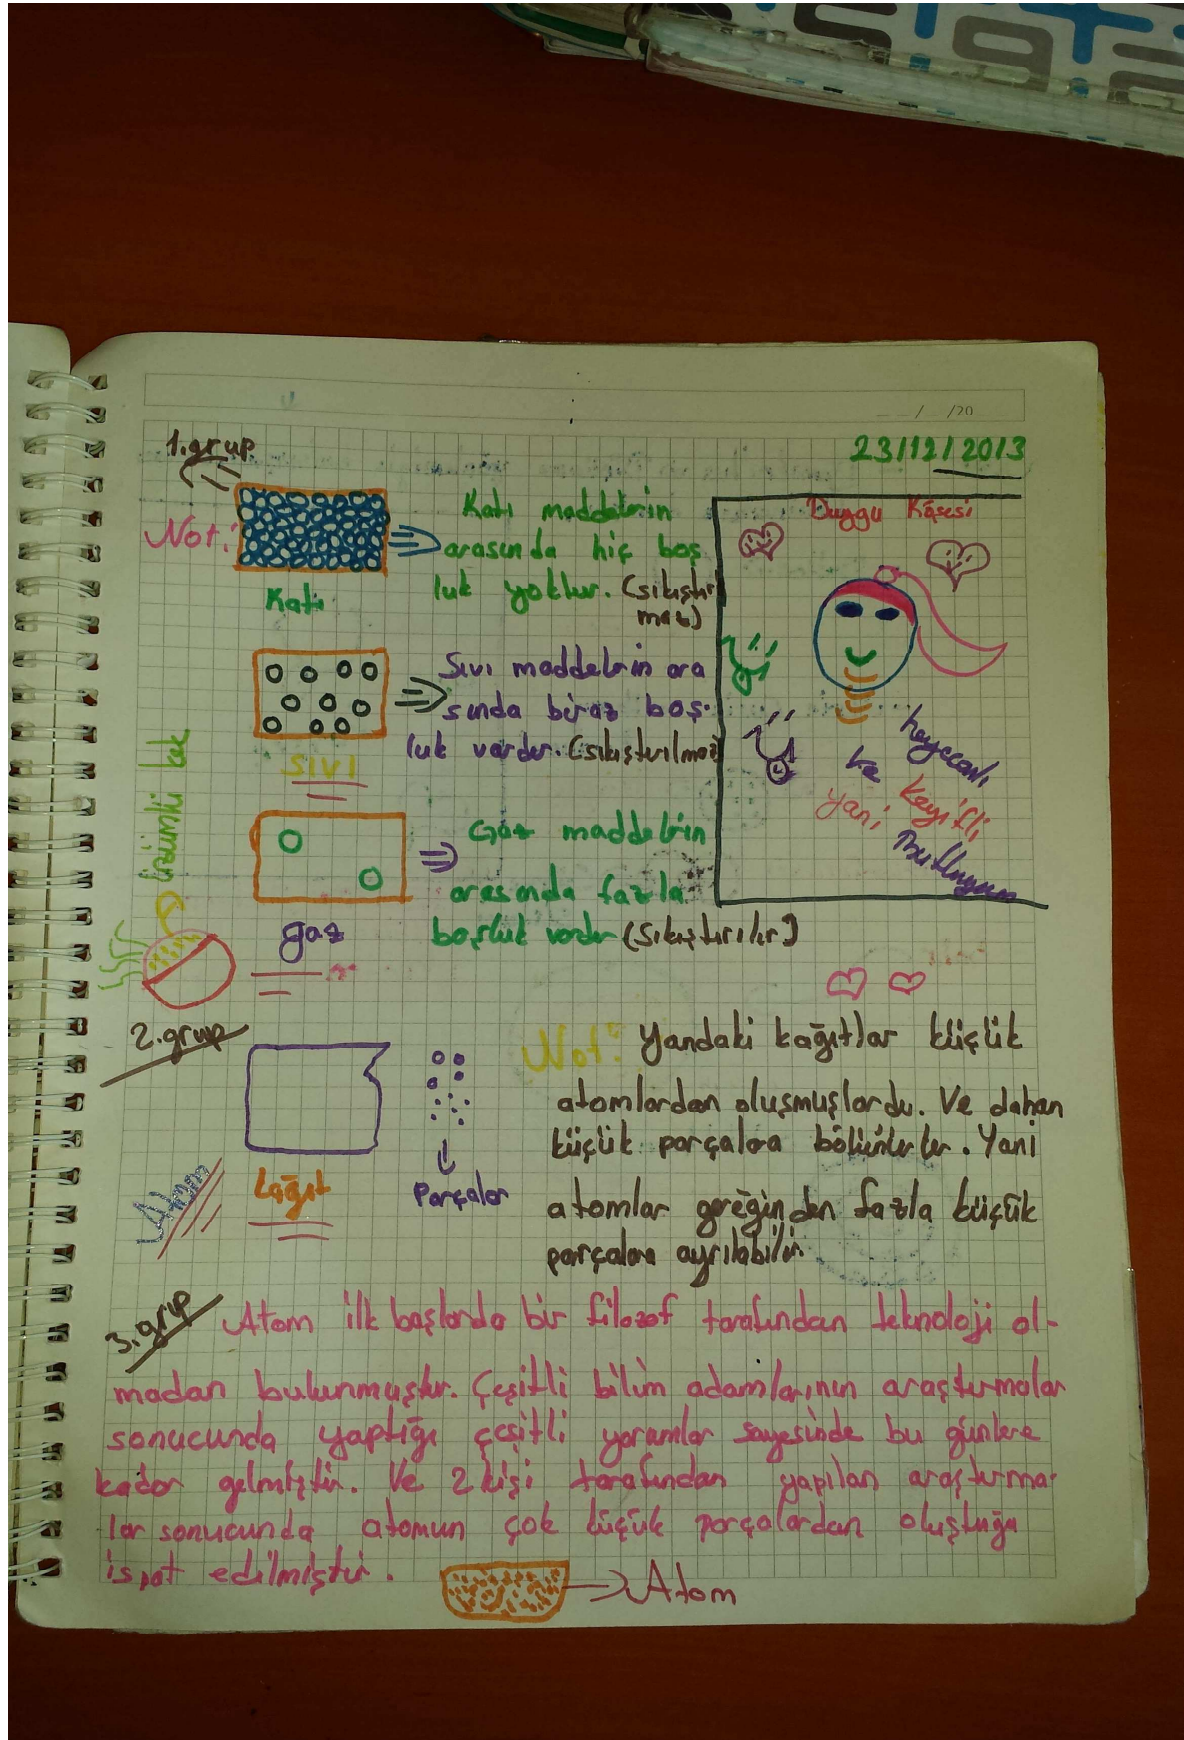 __/__/20
23/12/2013
1.grup
Not:
Katı
Katı maddelerin
arasında hiç boş
luk yoktur. (sıkıştırı
maz)
Sıvı maddelerin ara
sında biraz boş.
luk vardır. (sıkıştırılmaz)
SIVI
Gaz maddelerin
arasında fazla
boşluk vardır (Sıkıştırılır)
gaz
üzümlü kek
Duygu Köşesi
heyecanlı
ve keyifli
yani
mutluyum
2.grup
Not: Yandaki kağıtlar küçük
atomlardan oluşmuşlardır. Ve dahan
küçük parçalara bölünürler. Yani
atomlar gereğinden fazla küçük
parçalara ayrılabilir
kağıt
parçalar
Atom
3.grup
Atom ilk başlarda bir filozof tarafından teknoloji ol-
madan bulunmuştur. Çeşitli bilim adamlarının araştırmalar
sonucunda yaptığı çeşitli yorumlar sayesinde bu günlere
kadar gelmiştir. Ve 2 kişi tarafından yapılan araştırma-
lar sonucunda atomun çok küçük parçalardan oluştuğu
ispat edilmiştir.
Atom